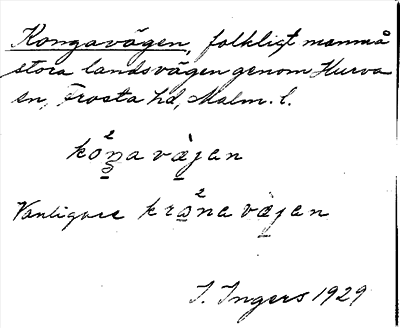 Kongavägen, folkligt namn på
stora landsvägen genom Hurva
sn, Frosta hd, Malm. l.
koŋ²a väjan
Vanligare krɷ²na väjan
I. Ingers 1929